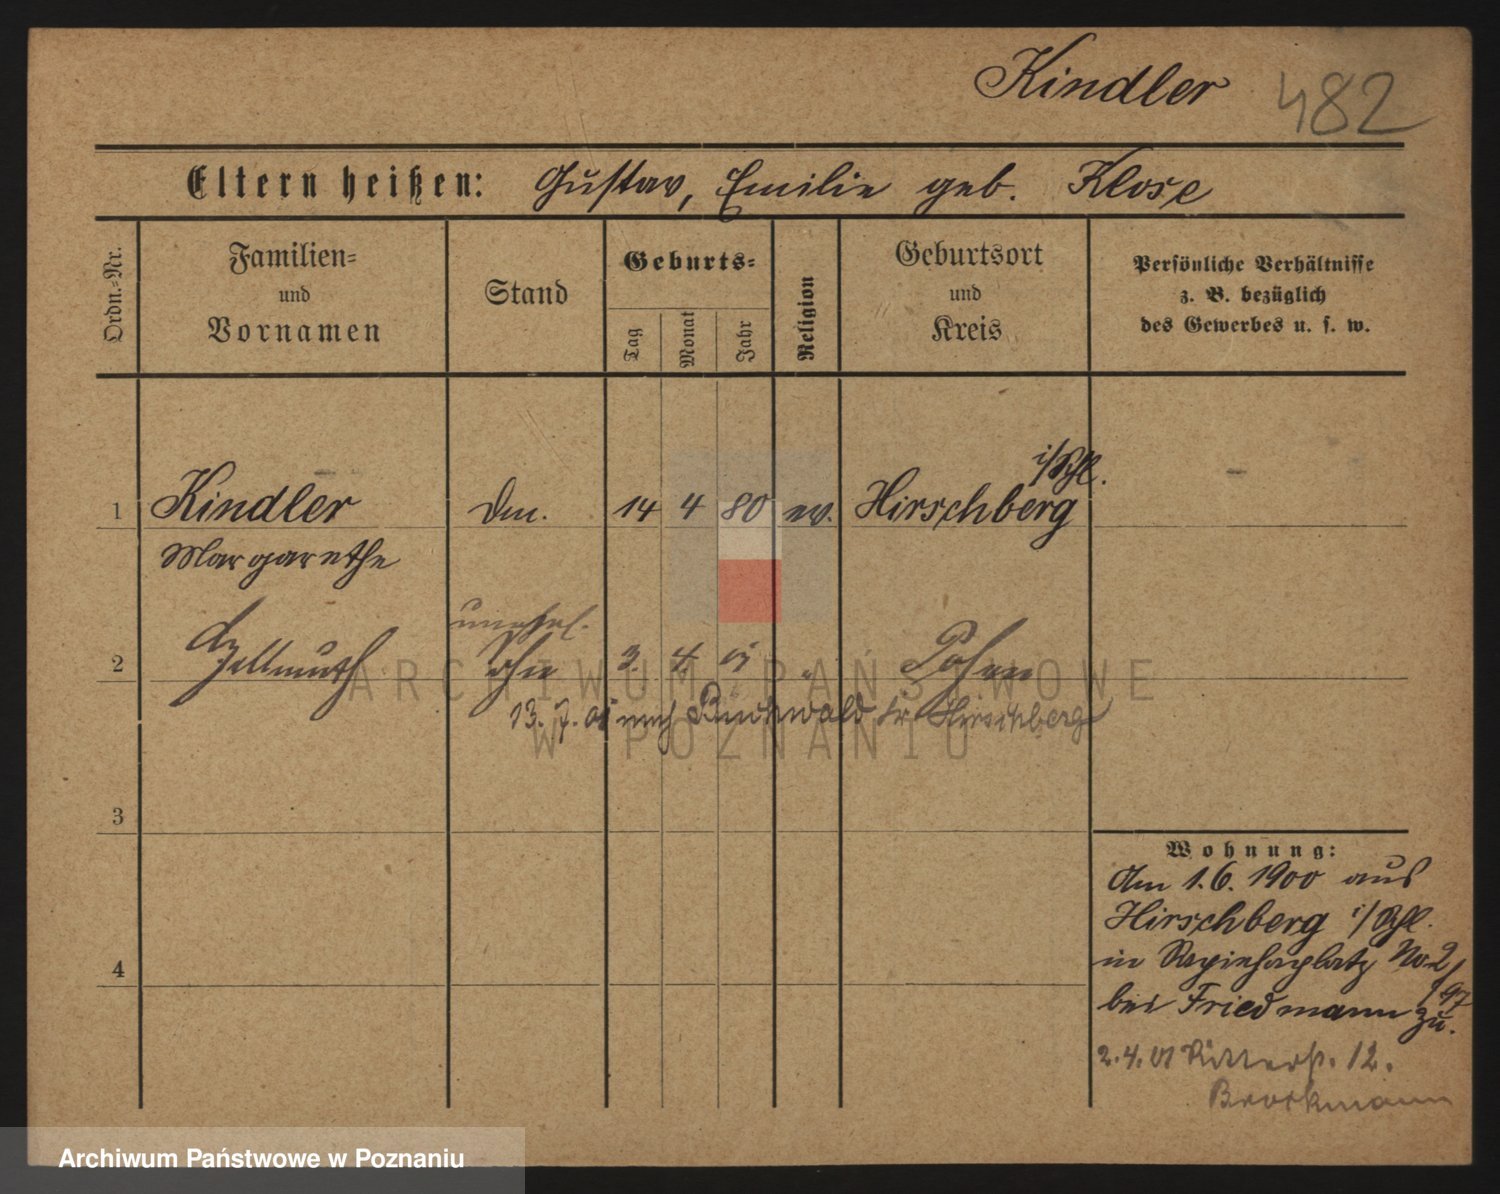 Kindler 482
Eltern heißen: Gustav, Emilie geb. Klose
Ordn.-Nr.
Familien-
und
Vornamen
Stand
Geburts-
Tag
Monat
Jahr
Religion
Geburtsort
und
Kreis
Persönliche Verhältnisse
z. B. bezüglich
des Gewerbes u. s. w.
i/Schl.
1 Kindler 14 4 80 ev. Hirschberg
Margarethe
unehel.
2 Hellmuth ohne 3. 4. Posen
13. 7. nach Buchwald Kr. Hirschberg
3
4
Wohnung:
Am 1.6.1900 aus
Hirschberg i/Schl.
in No 2/
bei Friedmann zu.
97
2.4.01 Ritterst. 12.
Brockmann
ARCHIWUM PAŃSTWOWE
W POZNANIU
Archiwum Państwowe w Poznaniu